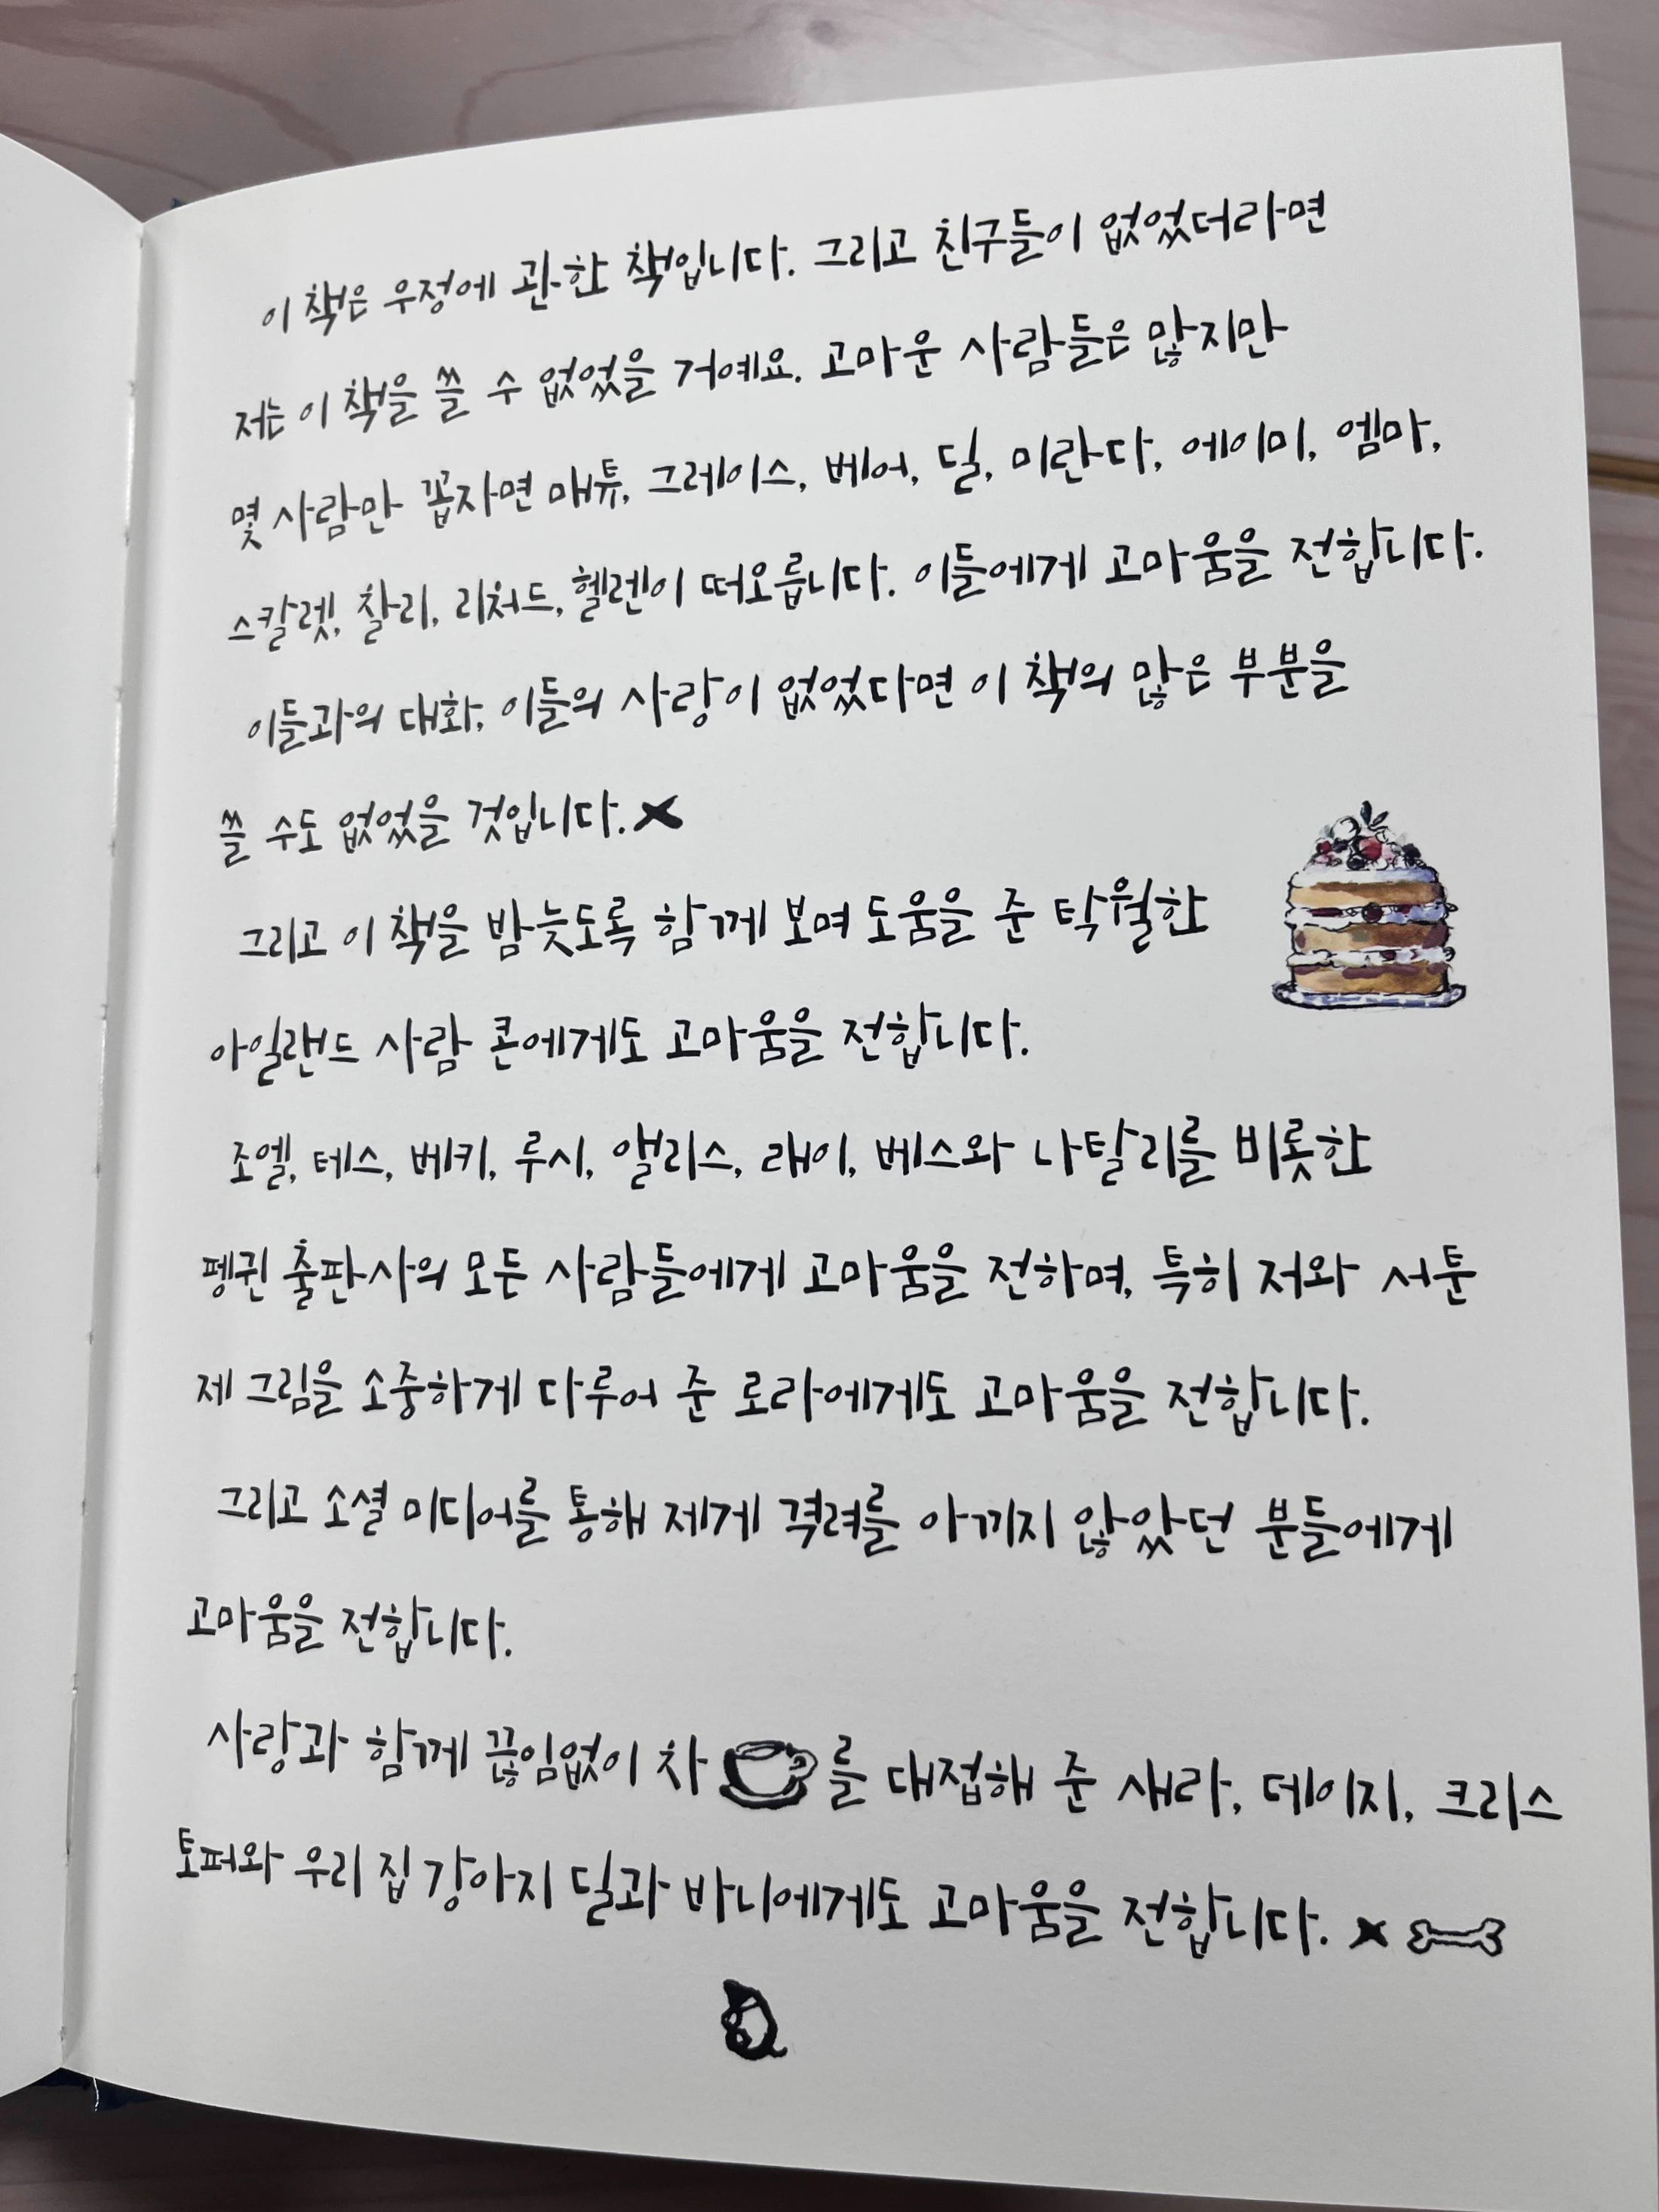 이 책은 우정에 관한 책입니다. 그리고 친구들이 없었더라면
저는 이 책을 쓸 수 없었을 거예요. 고마운 사람들은 많지만
몇 사람만 꼽자면 매튜, 그레이스, 베어, 딜, 미란다, 에이미, 엠마,
스칼렛, 찰리, 리처드, 헬렌이 떠오릅니다. 이들에게 고마움을 전합니다.
이들과의 대화, 이들의 사랑이 없었다면 이 책의 많은 부분을
쓸 수도 없었을 것입니다.
그리고 이 책을 밤늦도록 함께 보며 도움을 준 탁월한
아일랜드 사람 콘에게도 고마움을 전합니다.
조엘, 테스, 베키, 루시, 앨리스, 래이, 베스와 나탈리를 비롯한
펭귄 출판사의 모든 사람들에게 고마움을 전하며, 특히 저와 서툰
제 그림을 소중하게 다루어 준 로라에게도 고마움을 전합니다.
그리고 소셜 미디어를 통해 제게 격려를 아끼지 않았던 분들에게
고마움을 전합니다.
사랑과 함께 끊임없이 차 를 대접해 준 새라, 데이지, 크리스
토퍼와 우리 집 강아지 딜과 바니에게도 고마움을 전합니다.